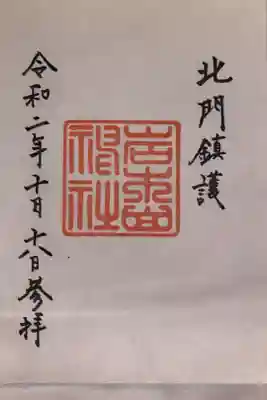 北門鎮護
岩木山
神社
令和二年十月十八日参拝